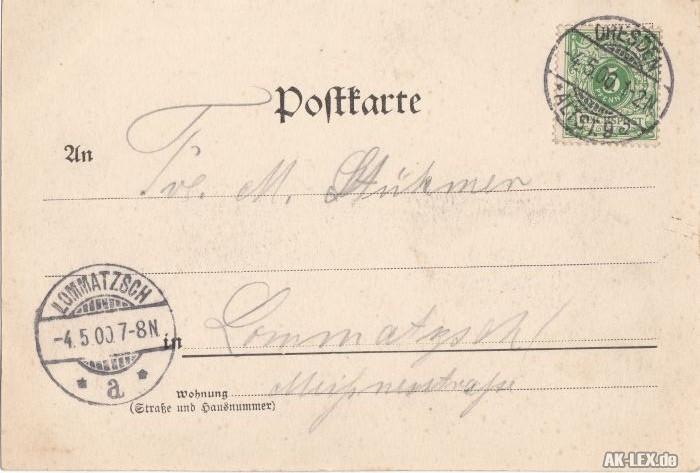 Postkarte
DRESDEN
-4.5.00.
ALTST. 9
An
Frl. M. Stühmer
LOMMATZSCH
-4.5.00.7-8N.
* a *
in
Lommatzsch
Wohnung
Meißnerstraße
(Straße und Hausnummer)
AK-LEX.de